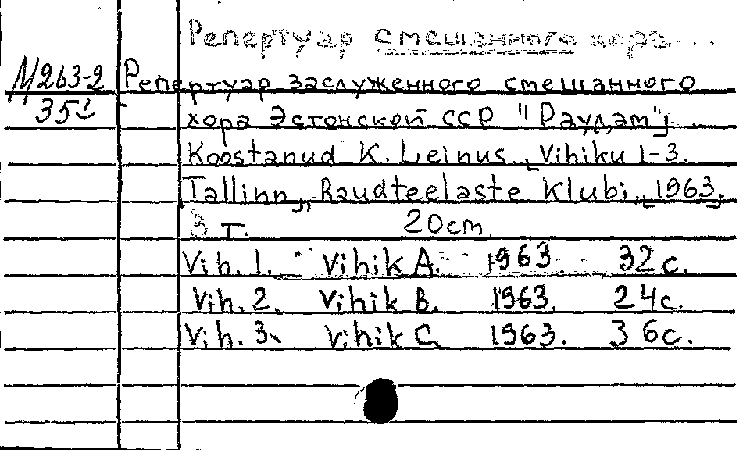 Репертуар смешанного хора...
М263-2 Репертуар заслуженного смешанного
хора Эстонской ССР "Раудам";
Koostanud K. Leinus. Vihiku 1-3.
Tallinn, Raudteelaste Klubi, 1963.
3 т. 20cm.
Vih. 1. Vihik A. 1963. 32 с.
Vih. 2. Vihik B. 1963. 24с.
Vih. 3. Vihik C. 1963. 36с.